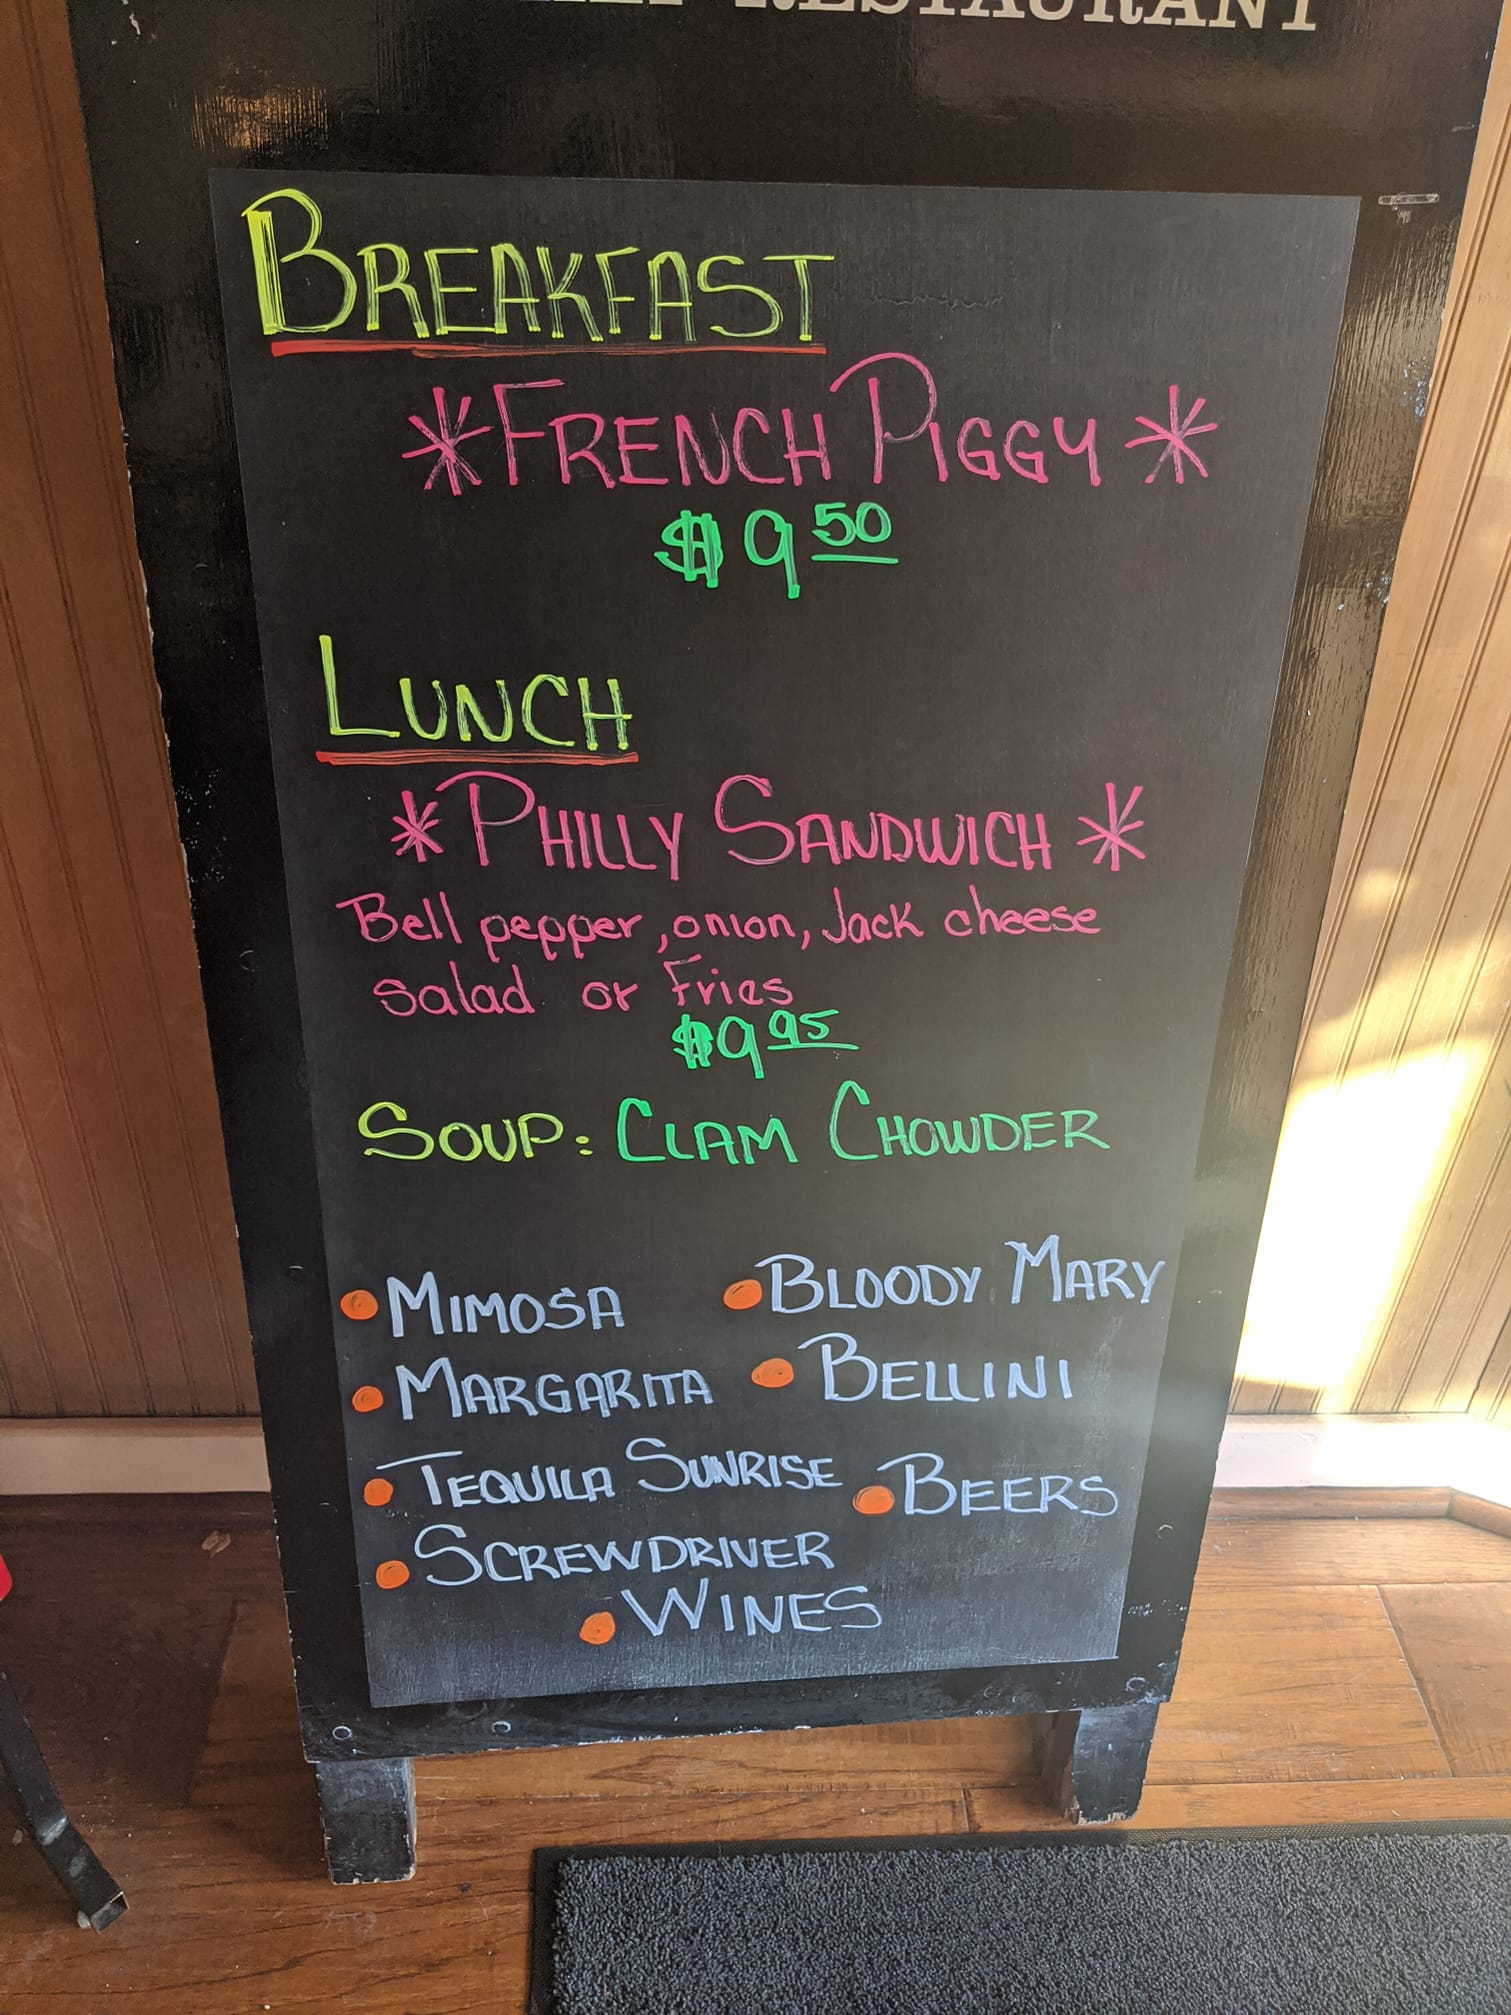 RESTAURANT
BREAKFAST
*FRENCH PIGGY*
$9 50
LUNCH
*PHILLY SANDWICH*
Bell pepper, onion, Jack cheese
salad or Fries
$9 95
SOUP: CLAM CHOWDER
• MIMOSA • BLOODY MARY
• MARGARITA • BELLINI
• TEQUILA SUNRISE • BEERS
• SCREWDRIVER
• WINES